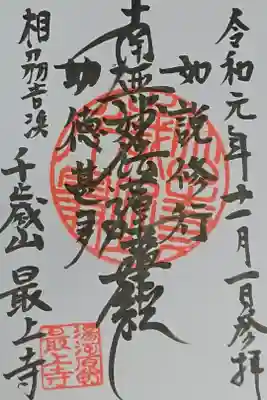 令和元年十一月一日参拝
如説修行
南無妙法蓮華経
功徳甚多
相刕吉浜
千歳山 最上寺
湯河原町
最上寺